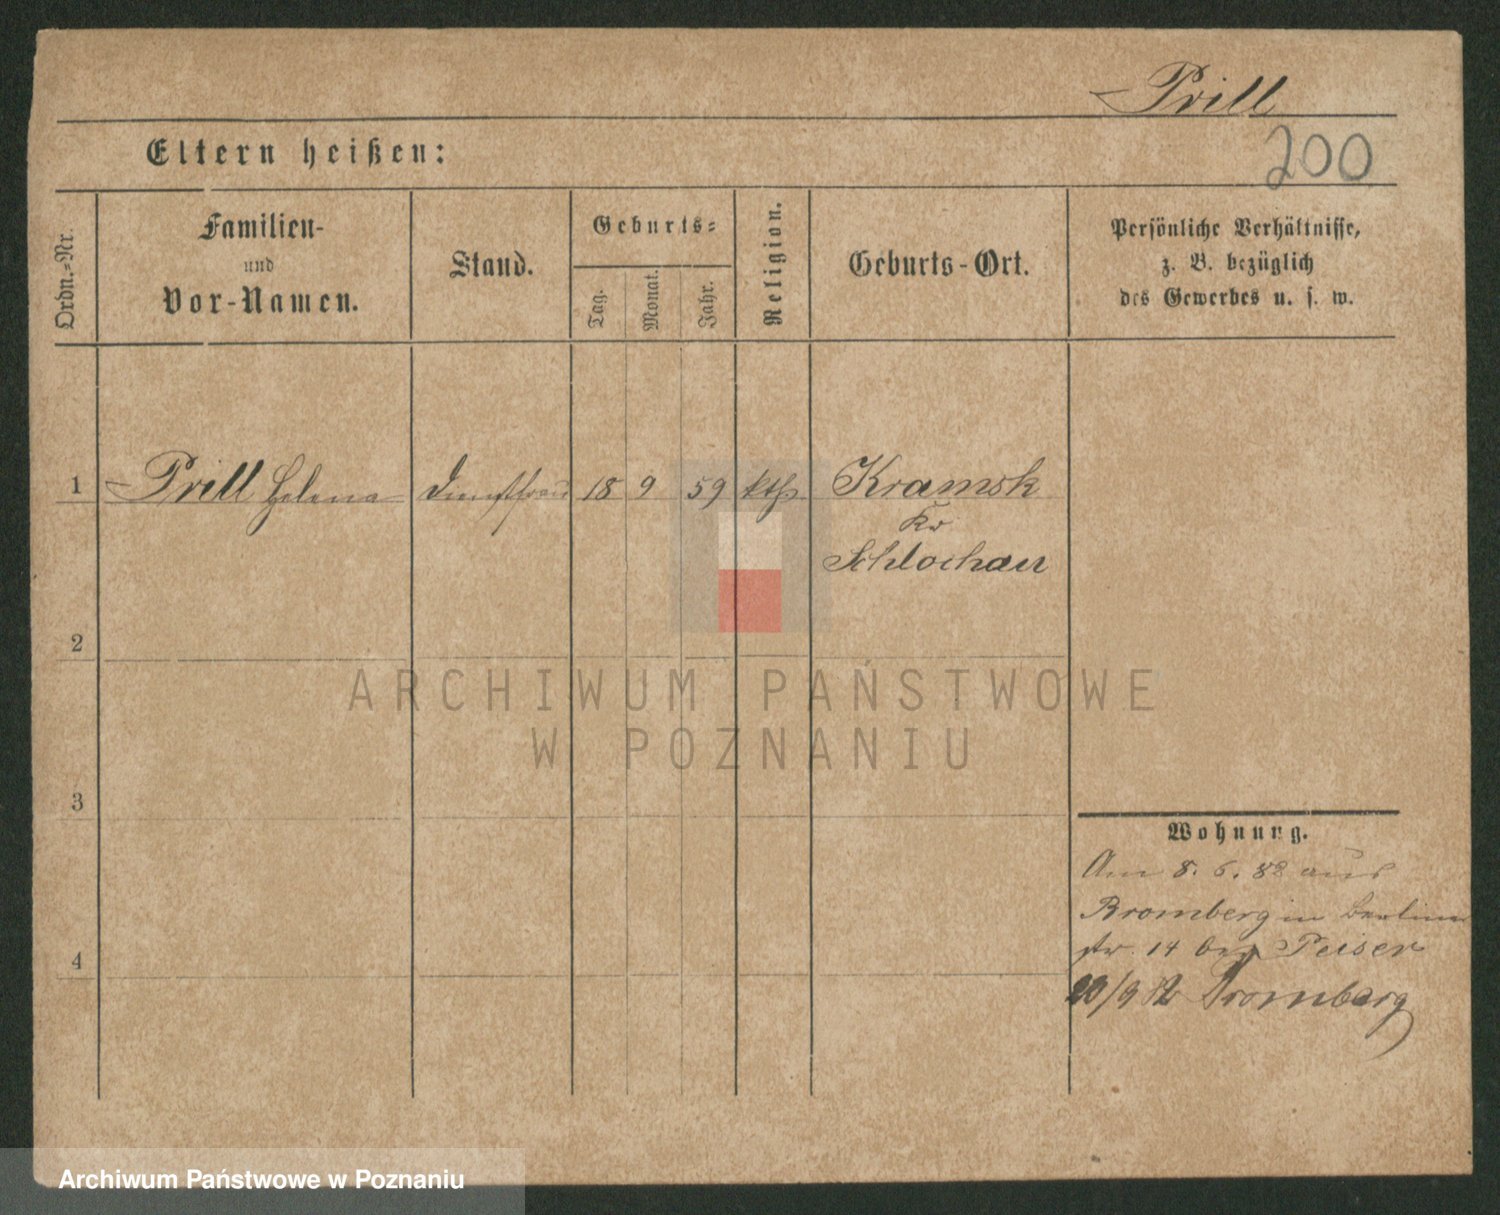 Prill
200
Eltern heißen:
Ordn.-Nr.
Familien-
und
Vor-Namen.
Stand.
Geburts-
Tag.
Monat.
Jahr.
Religion.
Geburts-Ort.
Persönliche Verhältnisse,
z. B. bezüglich
des Gewerbes u. s. w.
1 Prill Helena Dienstfrau 18 9 59 kth Kramsk
Kr
Schlochau
2
ARCHIWUM PAŃSTWOWE
W POZNANIU
3
Wohnung.
Am 8. 6. 82 aus
Bromberg in Berliner
str. 14 bei Peiser
4
20/9 82 Bromberg
Archiwum Państwowe w Poznaniu